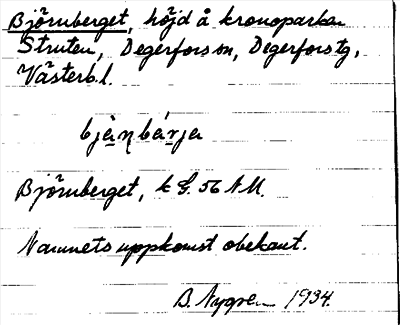 Björnberget, höjd å kronoparken
Struten, Degerfors sn, Degerfors tg,
Västerb.l.
bjä̀ɳbárja
Björnberget, k G. 56 N.M.
Namnets uppkomst obekant.
B. Nygren 1934.